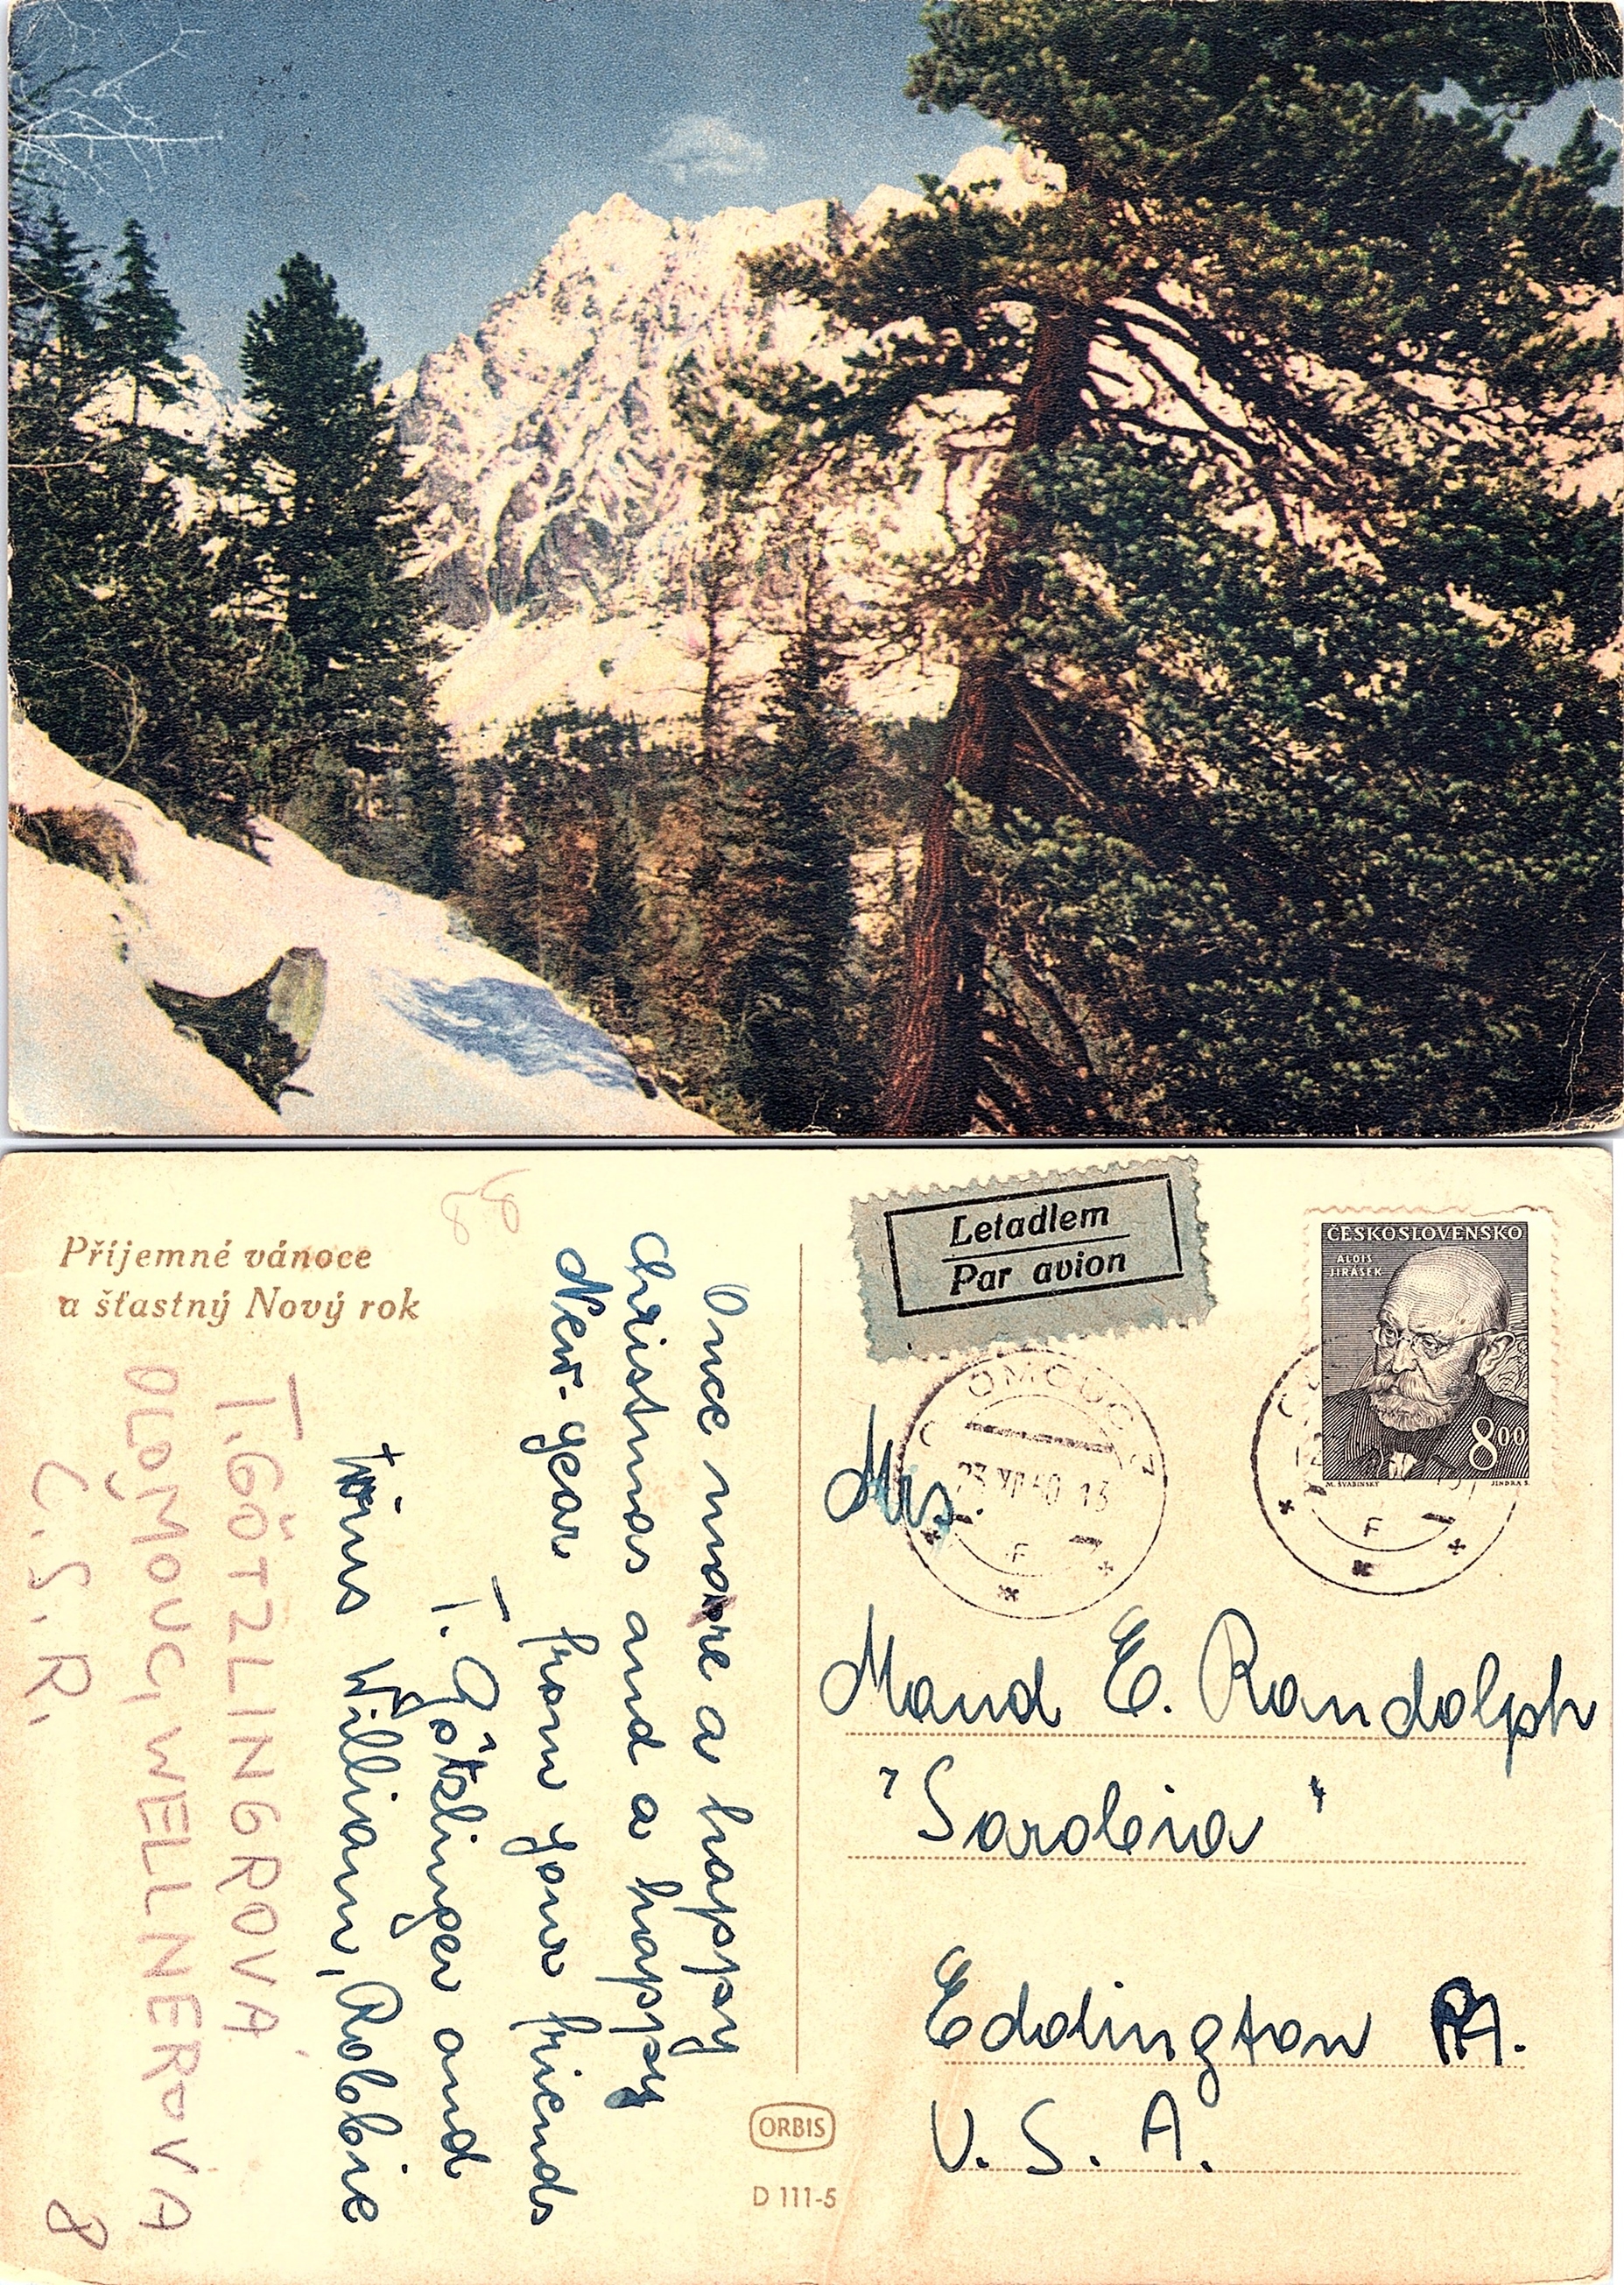 Příjemné vánoce
a šťastný Nový rok
Once more a happy
Christmas and a happy
New-year from your friends
T. Götzlinger and
William, Robbie
T. GÖTZLINGROVÁ
OLOMOUC, WELLNEROVA 8
Č.S.R.
Letadlem
Par avion
ČESKOSLOVENSKO
ALOIS
JIRÁSEK
800
M. ŠVABINSKÝ
JINDRA S.
OLOMOUC 2
23.XII.50-13
F
F
Mrs.
Maud E. Randolph
"Sarobia"
Eddington PA.
U.S.A.
ORBIS
D 111-5